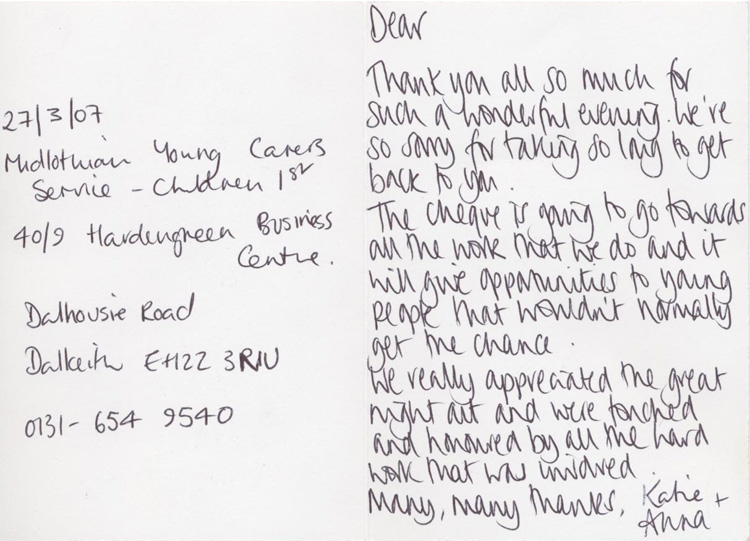 27/3/07
Midlothian Young Carers
Service - Children 1st
40/9 Hardengreen Business
Centre.
Dalhousie Road
Dalkeith EH22 3RU
0131-654 9540
Dear
Thank you all so much for
such a wonderful evening. We're
so sorry for taking so long to get
back to you.
The cheque is going to go towards
all the work that we do and it
will give opportunities to young
people that wouldn't normally
get the chance.
We really appreciated the great
night out and were touched
and honoured by all the hard
work that was involved.
Many, many thanks, Katie +
Anna